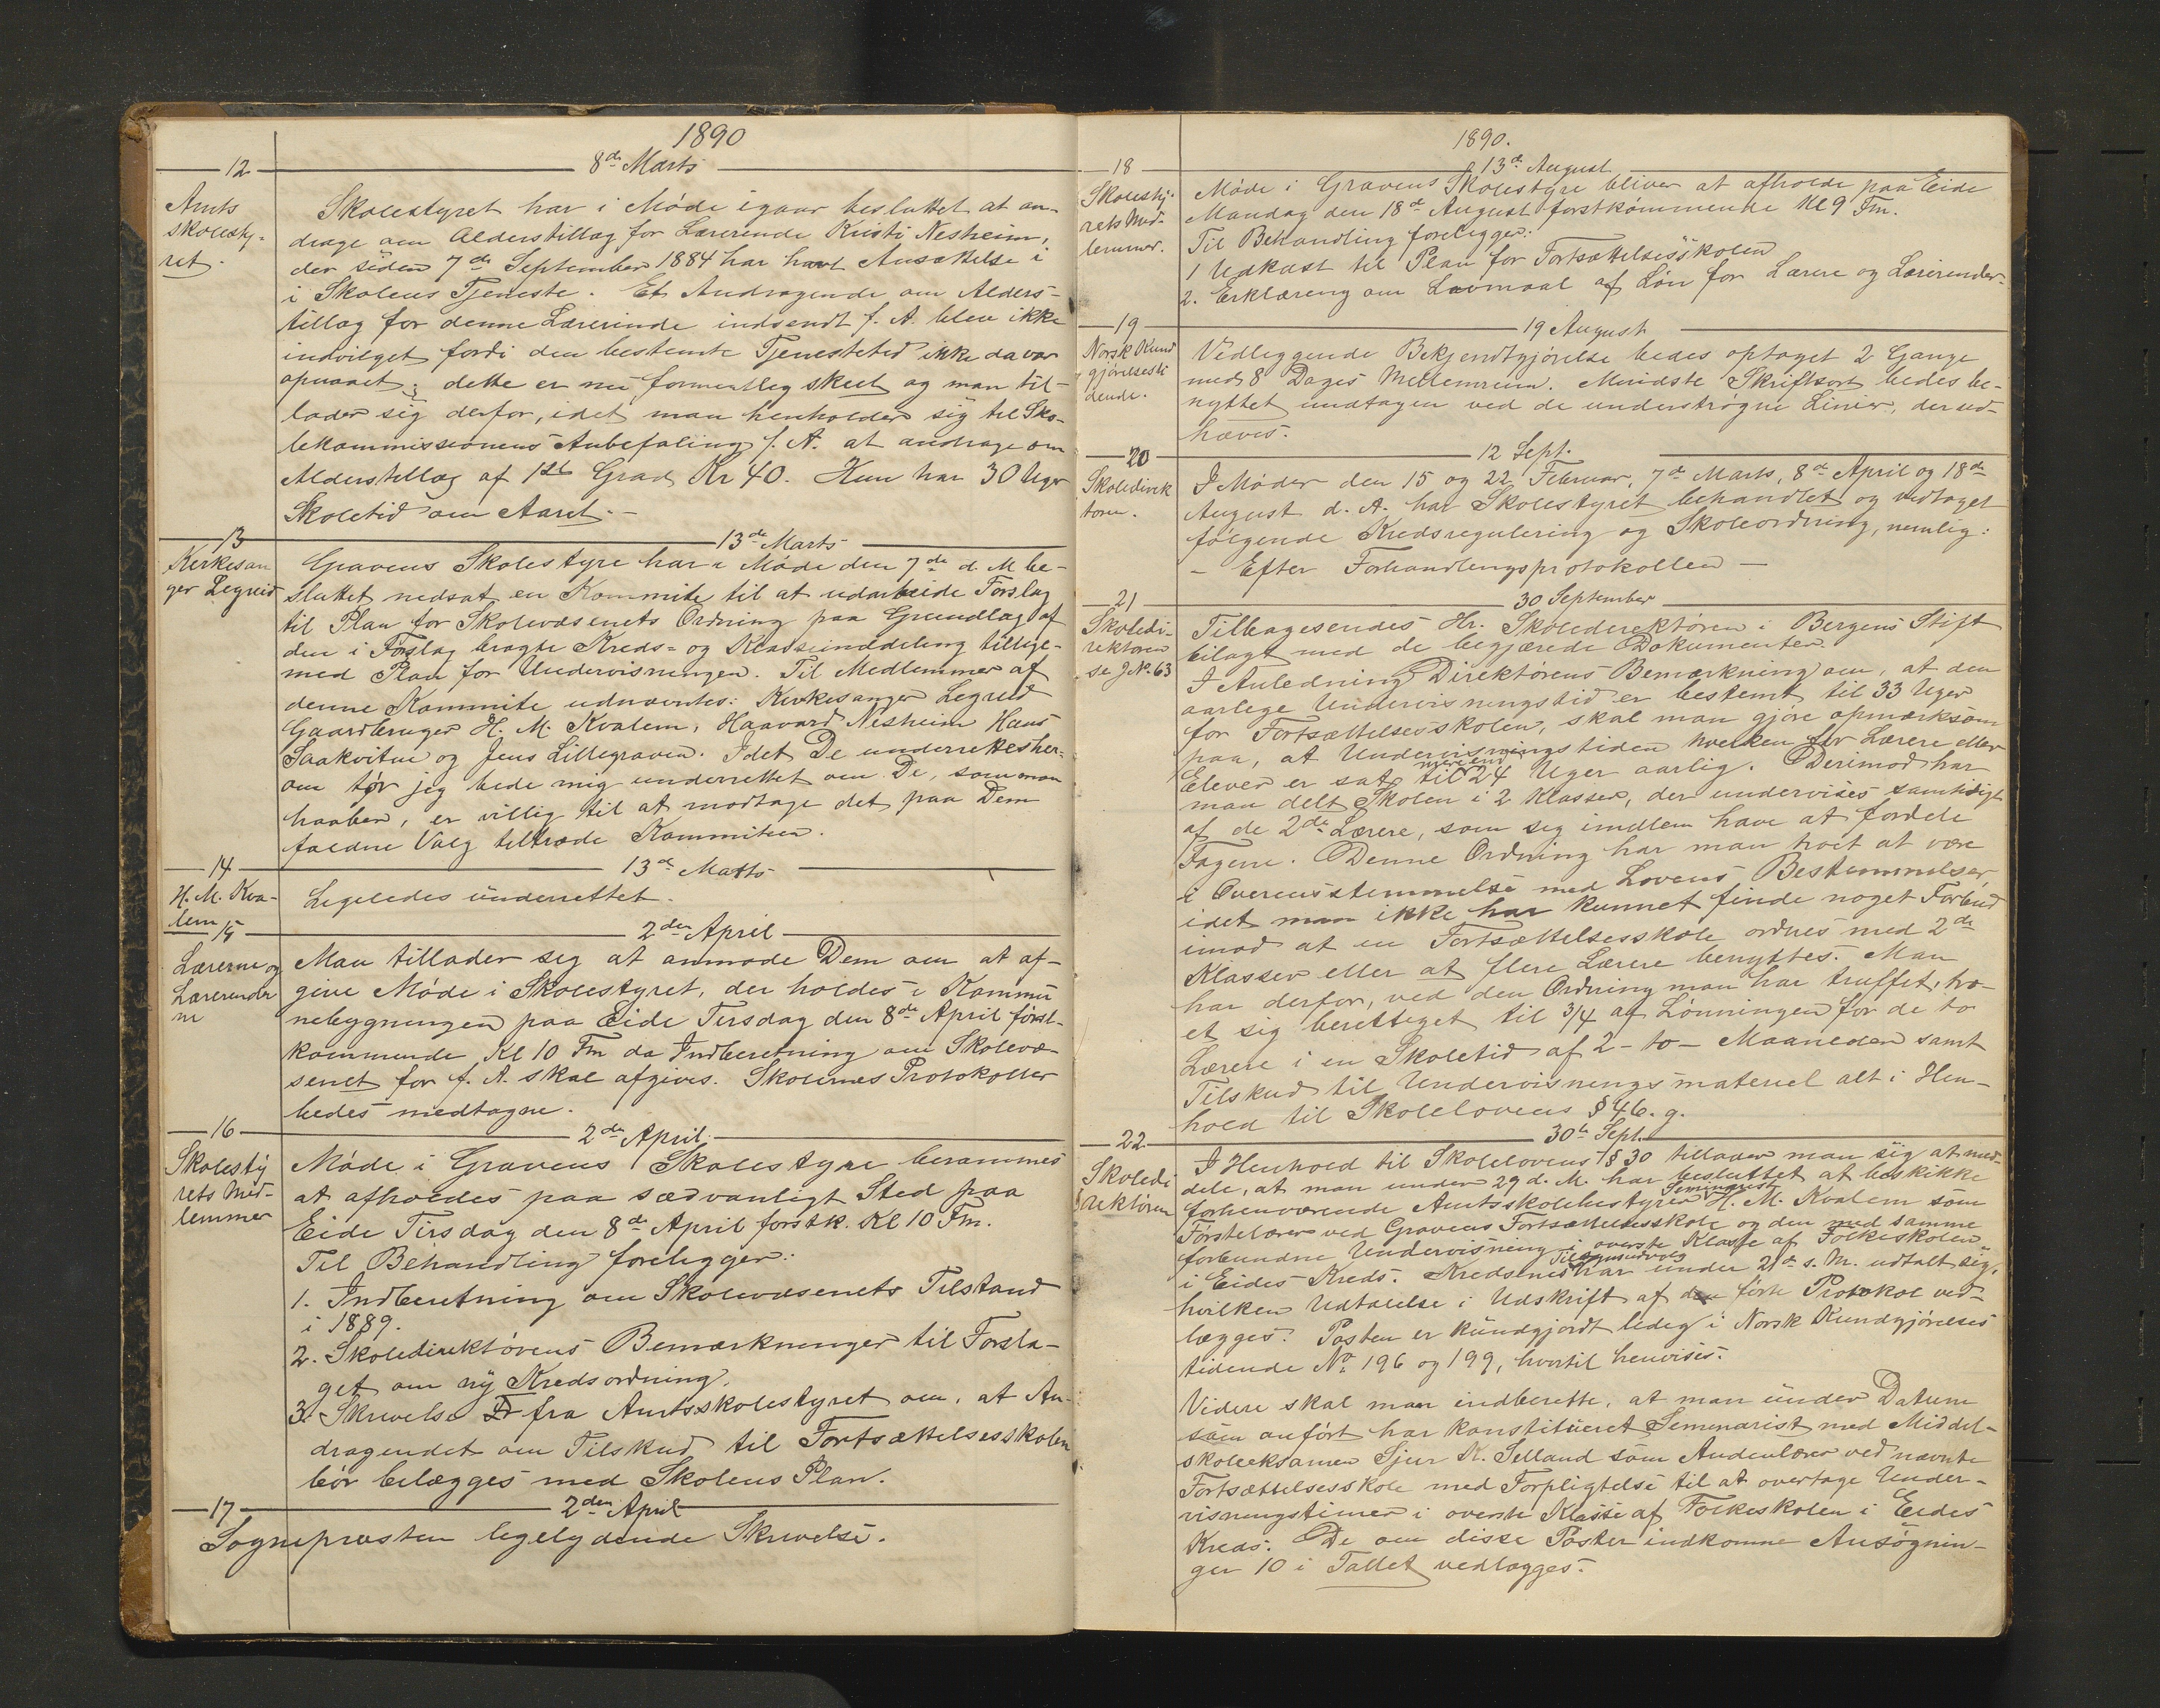 1890
12
8de Marts
Amts
skolesty-
ret.
Skolestyret har i Møde igaar besluttet at an-
drage om Alderstillæg for Lærerinde Kristi Nesheim,
der siden 7de September 1884 har havt Ansættelse i
i Skolens Tjeneste. Et Andragende om Alders-
tillæg for denne Lærerinde indsendt f. A. blev ikke
indvilget fordi den bestemte Tjenestetid ikke da var
opnaaet; dette er nu formentlig skeet og man til-
lader sig derfor, idet man henholder sig til Sko-
lekommissionens Anbefaling f. A. at andrage om
Alderstillæg af 1ste Grad Kr 40. Hun har 30 Uger
Skoletid om Aaret.-
13
13de Marts
Kirkesan
ger Legreid
Gravens Skolestyre har i Møde den 7de d. M be-
sluttet nedsat en Kommite til at udarbeide Forslag
til Plan for Skolevæsenets Ordning paa Grundlag af
den i Forslag bragte Kreds- og Klasseinddeling tillige-
med Plan for Undervisningen. Til Medlemmer af
denne Kommite udnævntes: Kirkesanger Legreid
Gaardbruger H. M. Kvalem, Haavard Nesheim Hans
Saakvitne og Jens Lillegraven. Idet De underrettes her-
om tør jeg bede mig underrettet om De, som man
haaber, er villig til at modtage det paa Dem
faldne Valg tiltræde Kommiteen.
14
13de Marts
H. M. Kva-
lem
Ligeledes underrettet.
15
2den April
Lærerne og
Lærerinder
ne
Man tillader sig at anmode Dem om at af-
give Møde i Skolestyret, der holdes i Kommu
nebygningen paa Eide Tirsdag den 8de April først-
kommende, Kl 10 Fm da Indberetning om Skolevæ-
senet for f. A. skal afgives. Skolernes Protokoller
bedes medtagne.
16
2den April.
Skolesty
rets Med-
lemmer
Møde i Gravens Skolestyre berammes
at afholdes paa sædvanligt Sted paa
Eide Tirsdag den 8de April førstk. Kl 10 Fm.
Til Behandling foreligger:
1. Indberetning om Skolevæsenets Tilstand
i 1889.
2. Skoledirektørens Bemærkninger til Forsla-
get om ny Kredsordning.
3. Skrivelse fra Amtsskolestyret om, at An-
dragendet om Tilskud til Fortsættelsesskolen
bør belægges med Skolens Plan.
17
2den April
Sognepresten ligelydende Skrivelse.
1890.
18
13de August
Skolesty-
rets Med-
lemmer.
Møde i Gravens Skolestyre bliver at afholde paa Eide
Mandag den 18de August førstkommende Kl 9 Fm.
Til Behandling foreligger:
1 Udkast til Plan for Fortsættelsesskolen
2. Erklæring om Lavmaal af Løn for Lærere og Lærerinder
19
19 August
Norsk Kund
gjørelsesti
dende.
Vedliggende Bekjendtgjørelse bedes optaget 2 Gange
med 8 Dages Mellemrum. Mindste Skriftsort bedes be-
nyttet undtagen ved de understrøgne Linier, der ud-
hæves.
20
12 Sept.
Skoledirek
tøren.
I Møder den 15 og 22 Februar, 7de Marts, 8de April og 18de
August d. A. har Skolestyret behandlet og vedtaget
følgende Kredsregulering og Skoleordning, nemlig:
- Efter Forhandlingsprotokollen -
21
30 September
Skoledi-
rektøren
se J. No. 63
Tilbagesendes Hr. Skoledirektøren i Bergens Stift
bilagt med de begjærede Dokumenter.
I Anledning Direktørens Bemærkning om, at den
aarlige Undervisningstid er bestemt til 33 Uger
for Fortsættelsesskolen, skal man gjøre opmærksom
paa, at Undervisningstiden hverken for Lærere eller
Elever er sat til mere end 24 Uger aarlig. Derimod har
man delt Skolen i 2 Klasser, der undervises samtidigt
af de 2de Lærere, som sig imellem have at fordele
Fagene. Denne Ordning har man troet at være
i Overensstemmelse med Lovens Bestemmelser,
idet man ikke har kunnet finde noget Forbud
imod at en Fortsættelsesskole ordnes med 2de
Klasser eller at flere Lærere benyttes. Man
har derfor, ved den Ordning man har truffet, tro-
et sig berettiget til 3/4 af Lønningen for de to
Lærere i en Skoletid af 2 - to - Maaneder samt
Tilskud til Undervisningsmateriel alt i Hen-
hold til Skolelovens § 46. g.
22
30te Sept.
Skoledi
rektøren
I Henhold til Skolelovens § 30 tillader man sig at med-
dele, at man under 29 d. M. har besluttet at beskikke
forhenværende Amtsskolebestyrer Seminarist H. M. Kvalem som
Førstelærer ved Gravens Fortsættelsesskole og den med samme
forbundne Undervisning i øverste Klasse af Folkeskolen
i Eides Kreds. Kredsens Tilsynsudvalg har under 21de s. M. udtalt sig,
hvilken Udtalelse i Udskrift af den førte Protokol ved-
lægges. Posten er kundgjordt ledig i Norsk Kundgjørelses
tidende No 196 og 199, hvortil henvises.
Videre skal man indberette, at man under Datum
som anført har konstitueret Seminarist med Middel-
skoleeksamen Sjur K. Selland som Andenlærer ved nævnte
Fortsættelsesskole med Forpligtelse til at overtage Under-
visningstimer i øverste Klasse af Folkeskolen i Eides
Kreds. De om disse Poster indkomne Ansøgnin-
ger 10 i Tallet vedlægges.